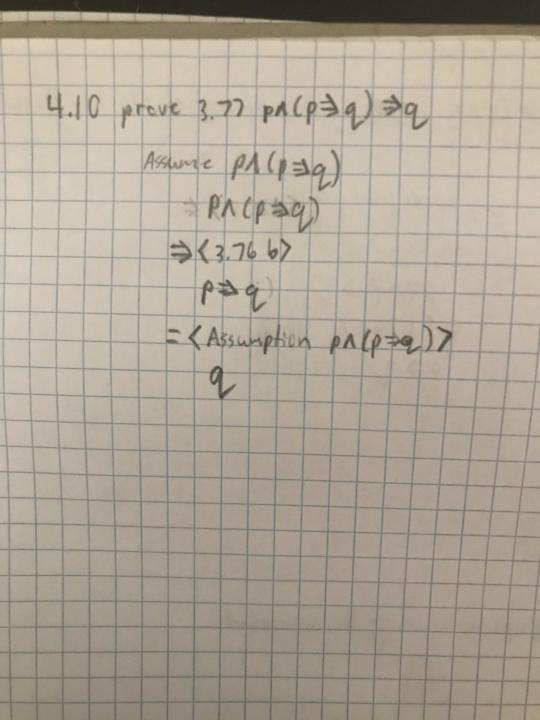 4.10 prove 3.77 p∧(p⇒q)⇒q
Assume p∧(p⇒q)
p∧(p⇒q)
⇒<3.76 b>
p⇒q
=<Assumption p∧(p⇒q)>
q